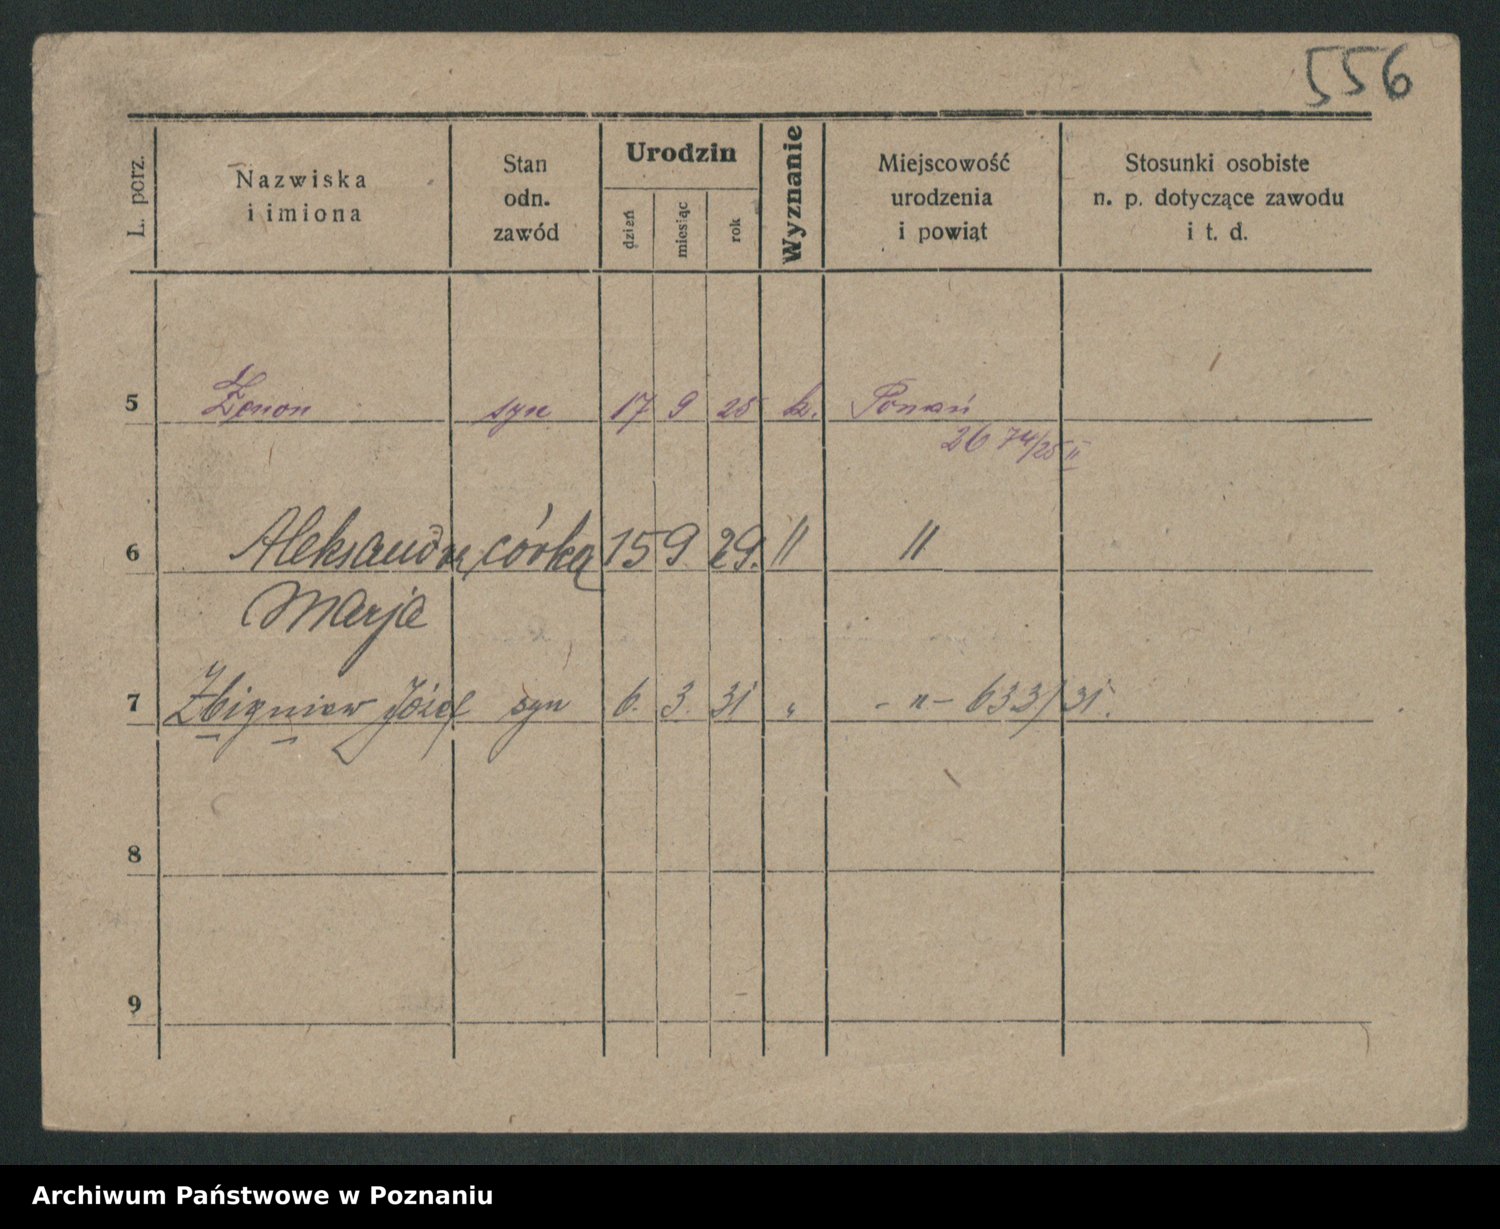 556
L. porz.
Nazwiska
i imiona
Stan
odn.
zawód
Urodzin
dzień
miesiąc
rok
Wyznanie
Miejscowość
urodzenia
i powiąt
Stosunki osobiste
n. p. dotyczące zawodu
i t. d.
5 Zenon syn 17 9 25 k. Poznań
2674/25 II
6 Aleksandra córka 15 9 29. " "
Marja
7 Zbigniew Józef syn 6. 3. 31 " - " - 633/31.
8
9
Archiwum Państwowe w Poznaniu